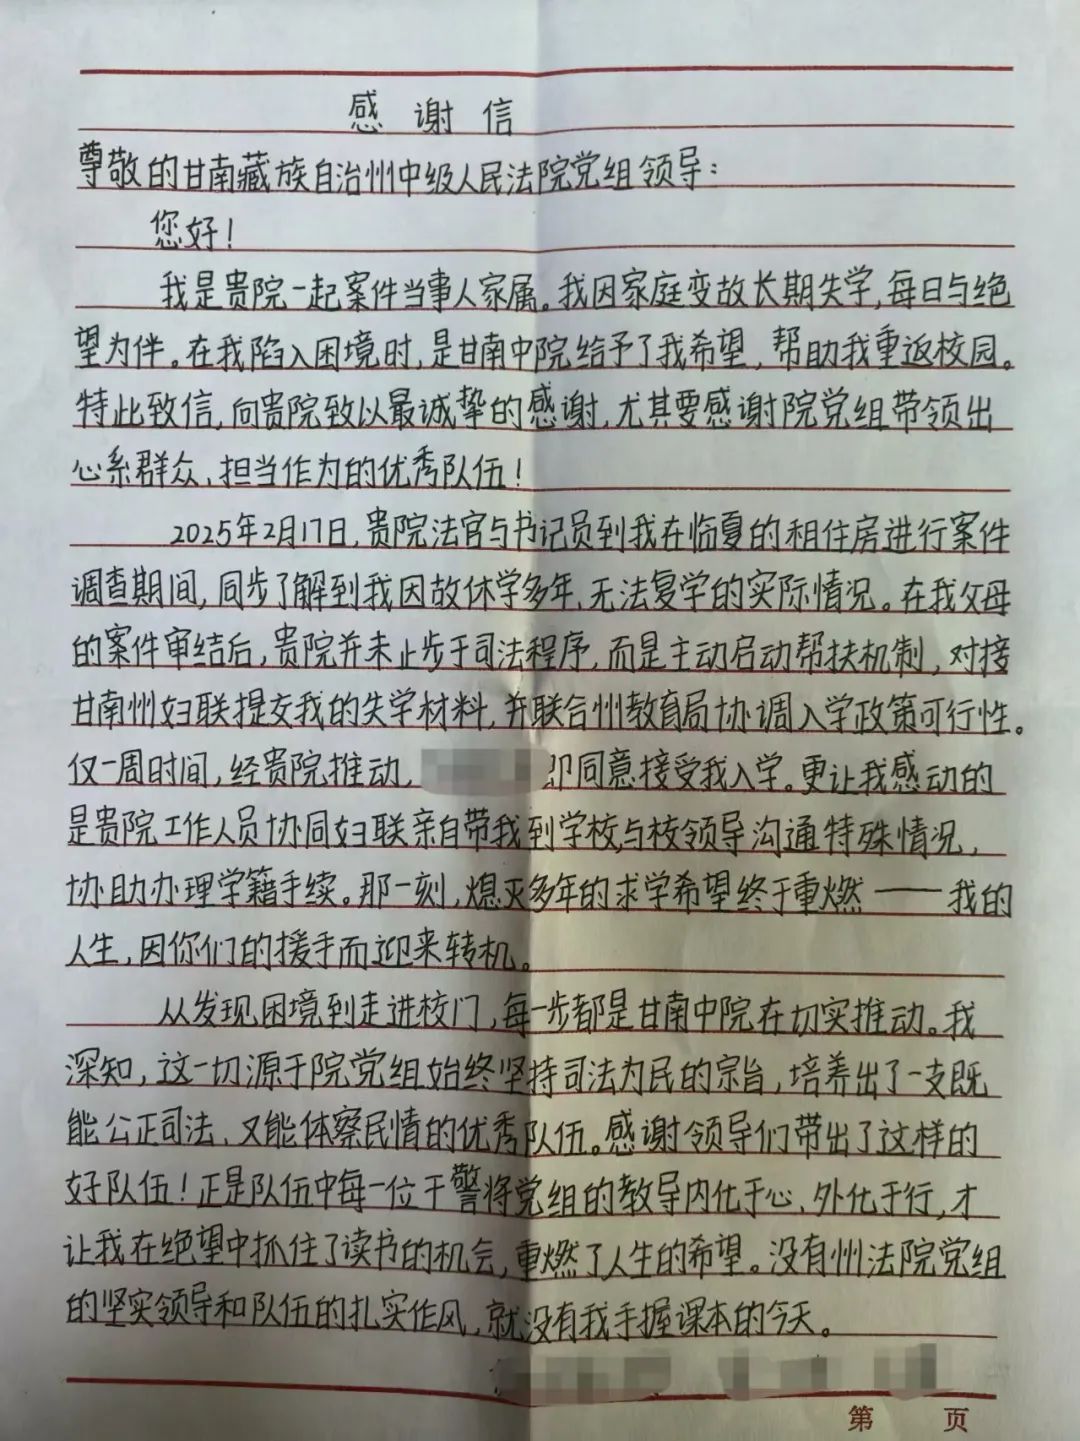 感谢信
尊敬的甘南藏族自治州中级人民法院党组领导：
您好！
我是贵院一起案件当事人家属。我因家庭变故长期失学，每日与绝
望为伴。在我陷入困境时，是甘南中院给予了我希望，帮助我重返校园。
特此致信，向贵院致以最诚挚的感谢，尤其要感谢院党组带领出
心系群众、担当作为的优秀队伍！
2025年2月17日，贵院法官与书记员到我在临夏的租住房进行案件
调查期间，同步了解到我因故休学多年，无法复学的实际情况。在我父母
的案件审结后，贵院并未止步于司法程序，而是主动启动帮扶机制，对接
甘南州妇联提交我的失学材料，并联合州教育局协调入学政策可行性。
仅一周时间，经贵院推动，即同意接受我入学。更让我感动的
是贵院工作人员协同妇联亲自带我到学校，与校领导沟通特殊情况，
协助办理学籍手续。那一刻，熄灭多年的求学希望终于重燃——我的
人生，因你们的援手而迎来转机。
从发现困境到走进校门，每一步都是甘南中院在切实推动。我
深知，这一切源于院党组始终坚持司法为民的宗旨，培养出了一支既
能公正司法、又能体察民情的优秀队伍。感谢领导们带出了这样的
好队伍！正是队伍中每一位干警将党组的教导内化于心、外化于行，才
让我在绝望中抓住了读书的机会，重燃了人生的希望。没有州法院党组
的坚实领导和队伍的扎实作风，就没有我手握课本的今天。
第 页